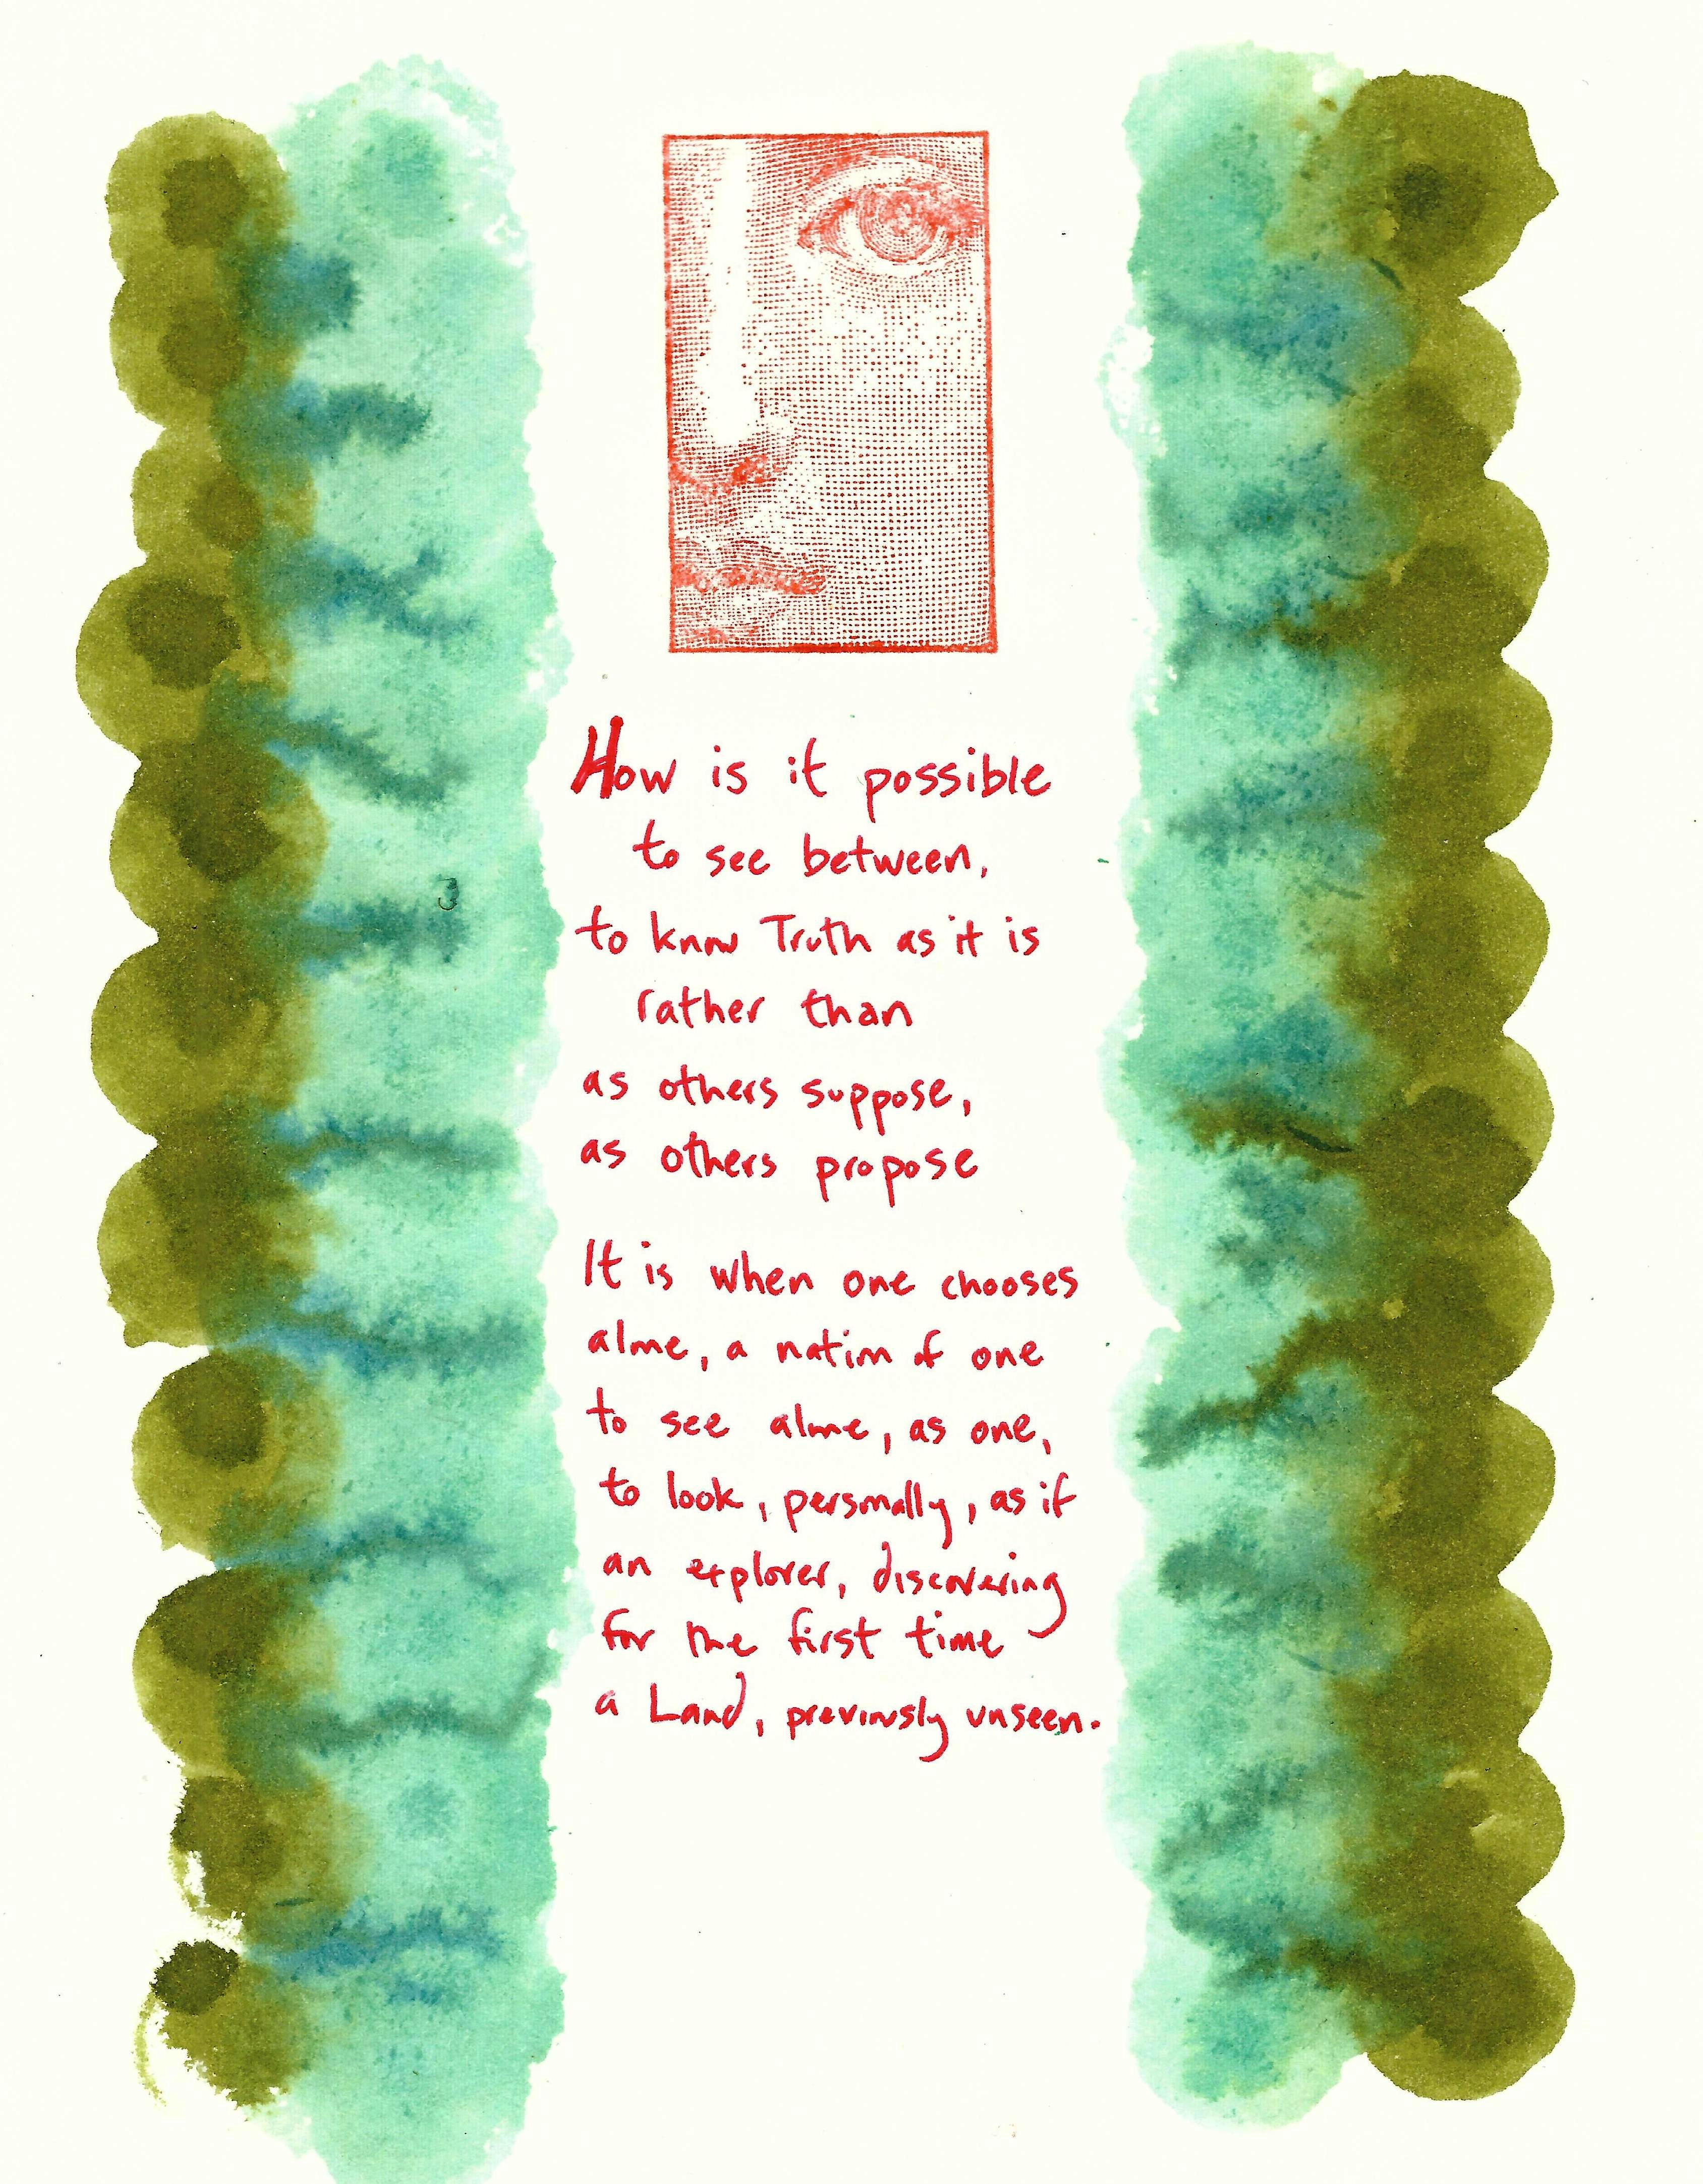 How is it possible
to see between,
to know Truth as it is
rather than
as others suppose,
as others propose
It is when one chooses
alone, a nation of one
to see alone, as one,
to look, personally, as if
an explorer, discovering
for the first time
a Land, previously unseen.